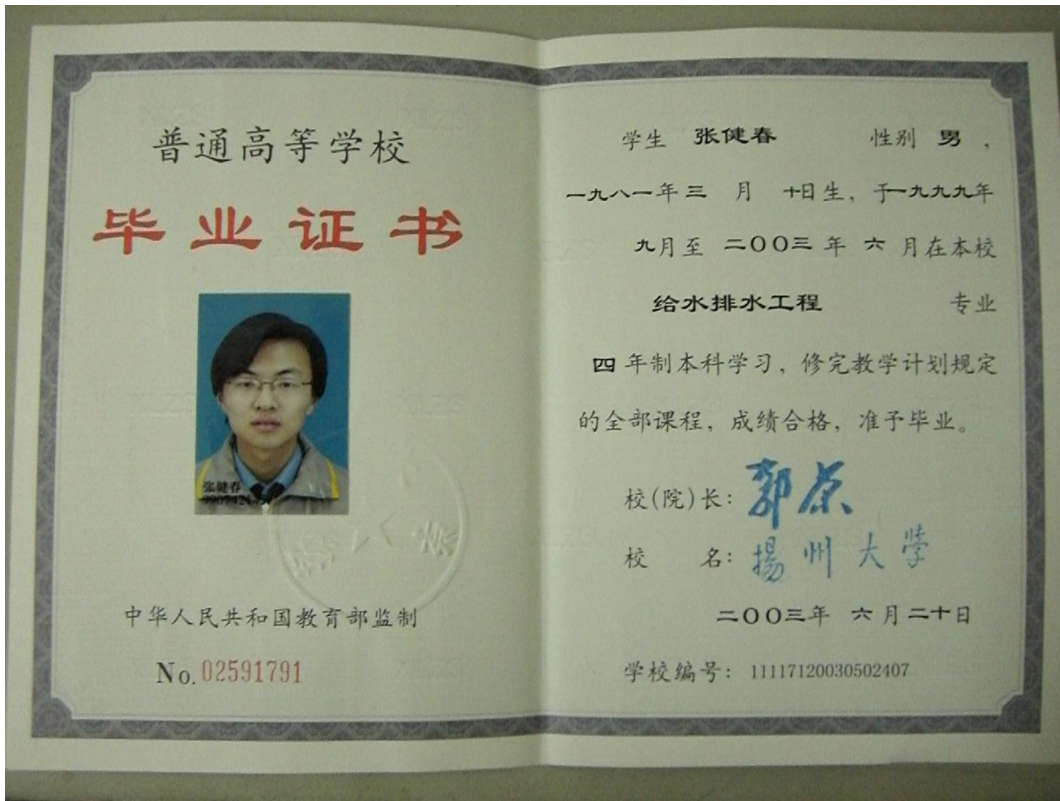 普通高等学校
毕业证书
张健春
中华人民共和国教育部监制
No. 02591791
学生 张健春 性别 男，
一九八一年三 月 十日生，于一九九九年
九月至 二〇〇三 年 六 月在本校
给水排水工程 专业
四年制本科学习，修完教学计划规定
的全部课程，成绩合格，准予毕业。
校(院)长：郭荣
校 名：揚州大学
二〇〇三年 六月二十日
学校编号：11117120030502407